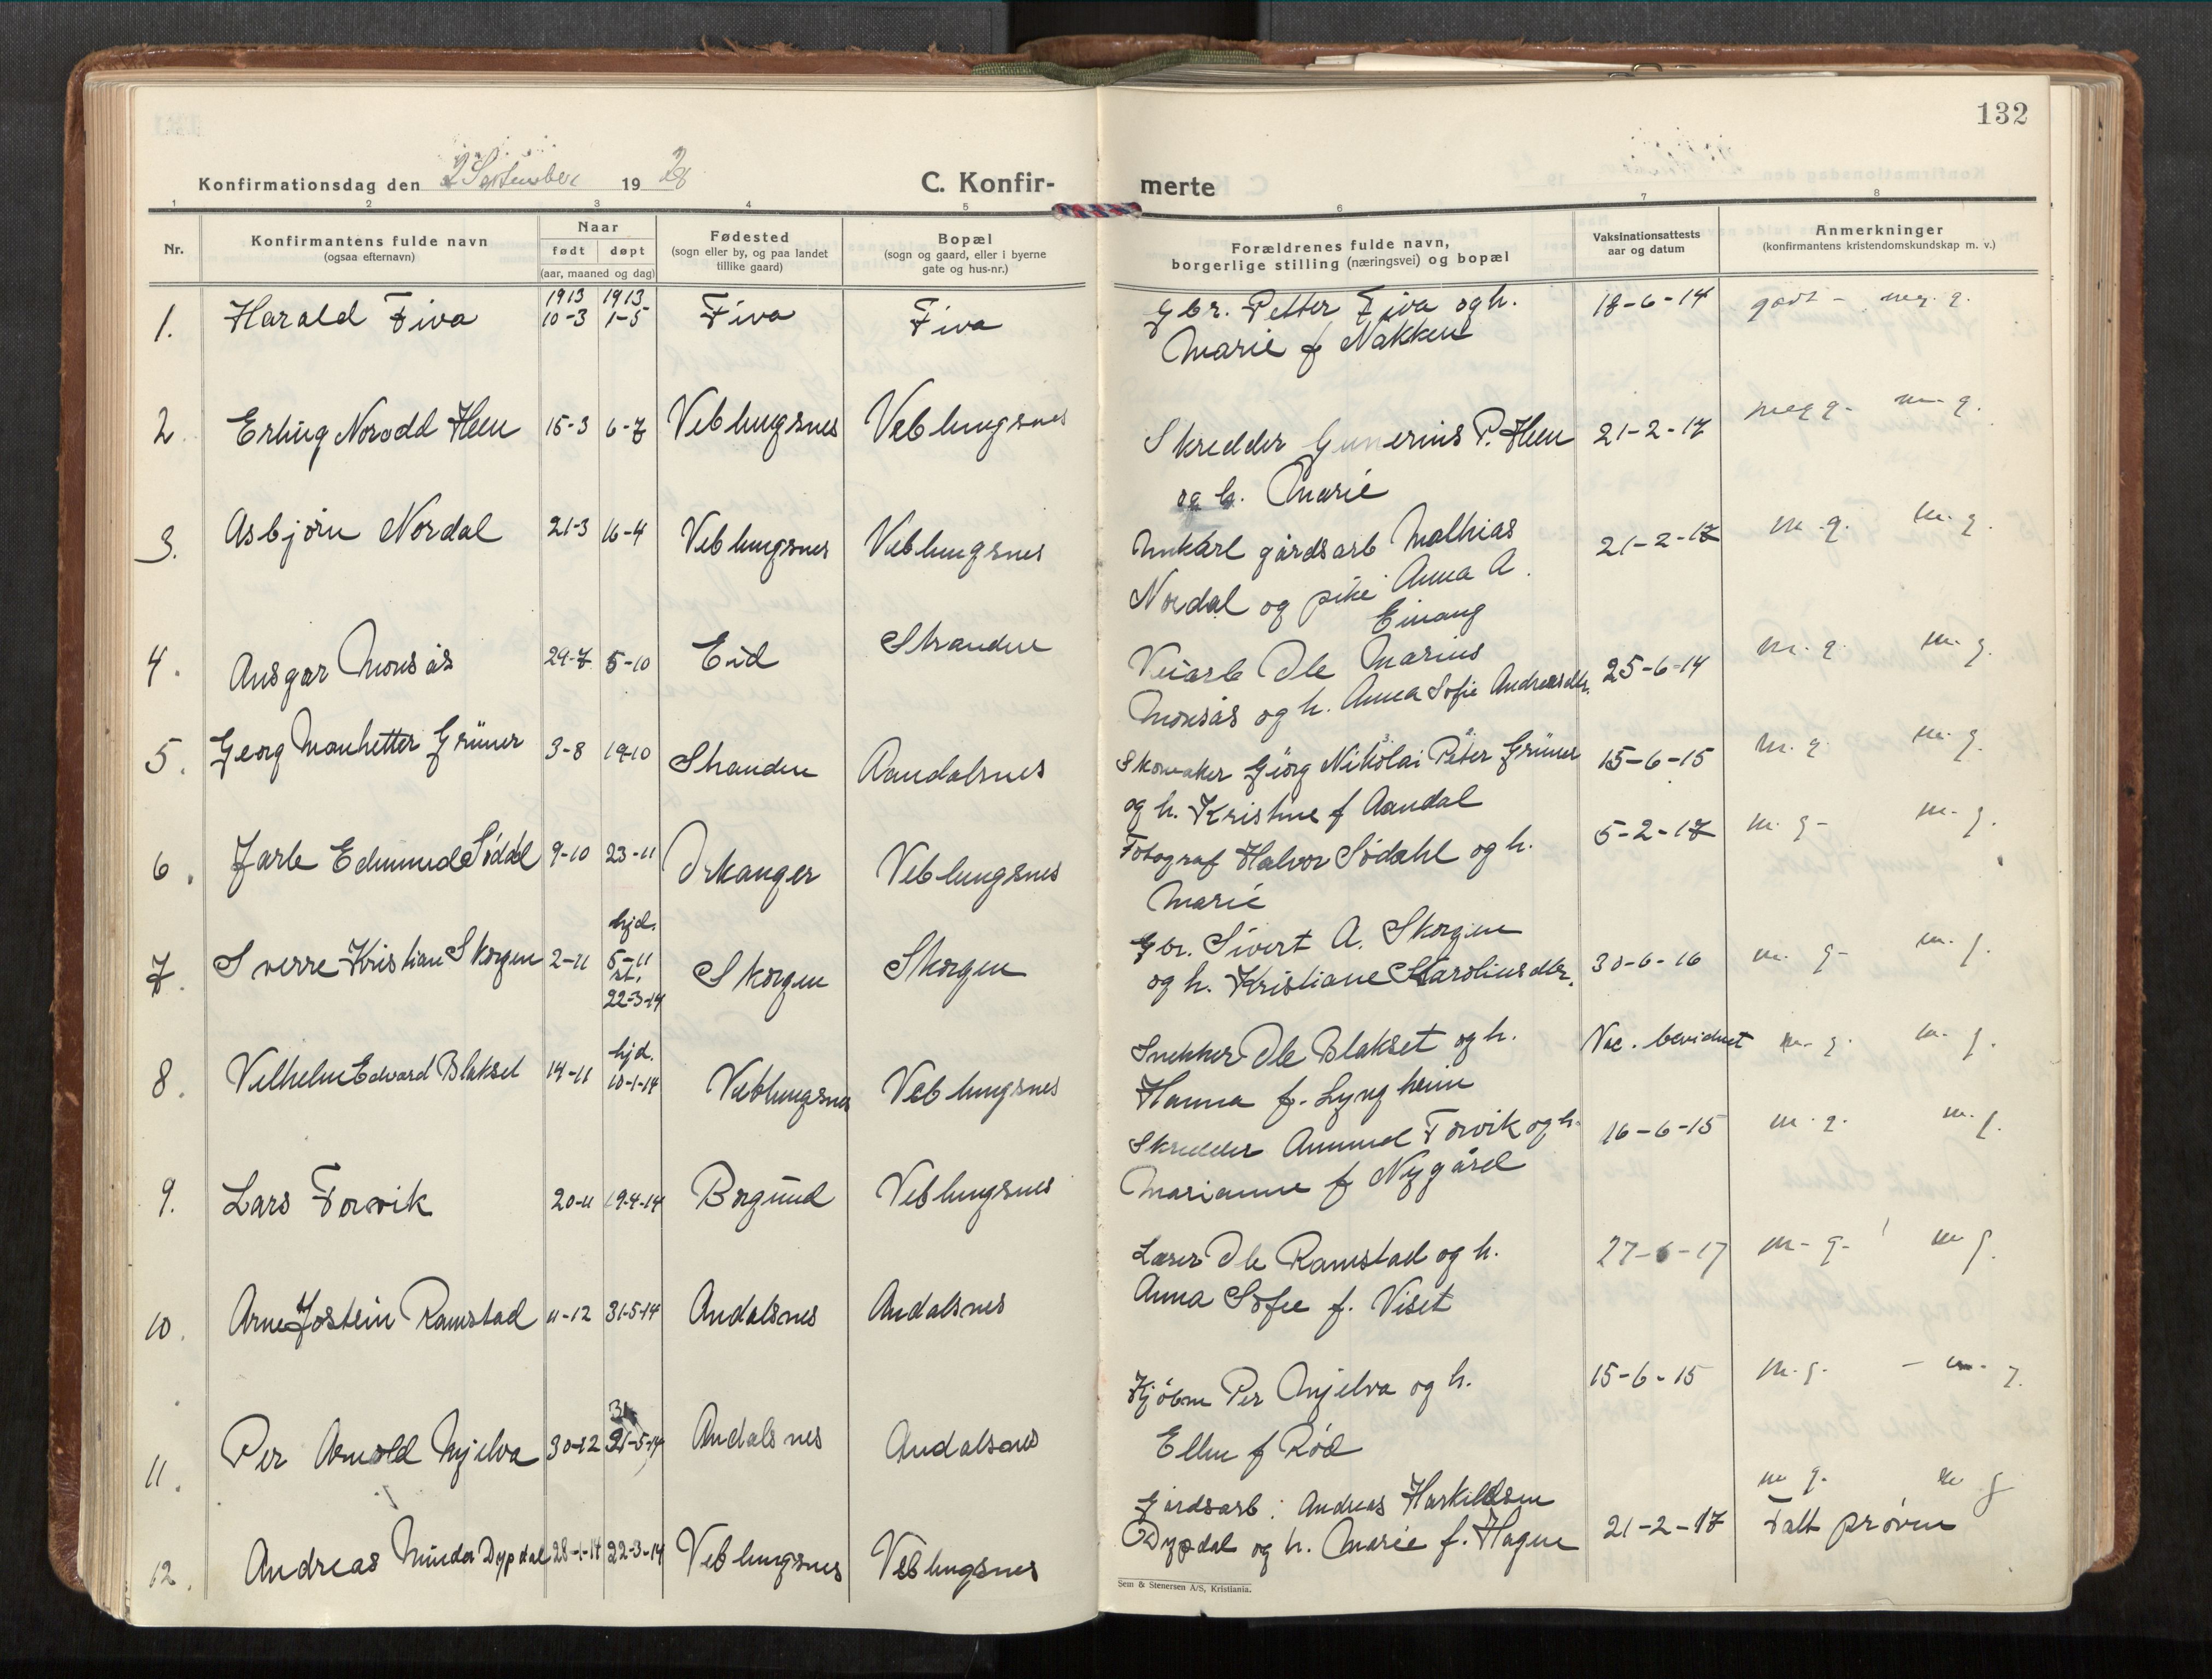 132
Konfirmationsdag den 2 September 19 28
C. Konfir- merte
1 2 3 4 5 6 7 8
Nr. Konfirmantens fulde navn (ogsaa efternavn) Naar født døpt (aar, maaned og dag) Fødested (sogn eller by, og paa landet tillike gaard) Bopæl (sogn og gaard, eller i byerne gate og hus-nr.) Forældrenes fulde navn, borgerlige stilling (næringsvei) og bopæl Vaksinationsattests aar og datum Anmerkninger (konfirmantens kristendomskundskap m. v.)
1. Harald Fiva 1913 10-3 1913 1-5 Fiva Fiva Gbr. Petter Fiva og h. 18-6-14 godt - meg. g.
Marie f Nakken
2. Erling Norodd Heen 15-3 6-7 Veblungsnes Veblungsnes Skredder Gunerius P. Heen 21-2-17 meg g. m. g.
og h. Marie
3. Asbjørn Nordal 21-3 16-4 Veblungsnes Veblungsnes Unkarl gårdsarb Mathias 21-2-17 m. g. m. g.
Nordal og pike Anna A.
Einang
4. Ansgar Monsås 29-7 5-10 Eid Stranden Veiarb Ole Marius 25-6-14 m. g. m. g.
Monsås og h. Anna Sofie Andreasdtr.
5. Georg Manhetter Grüner 3-8 19-10 Stranden Aandalsnes Skomaker Georg Nikolai Peter Grüner 15-6-15 m. g. m. g.
og h. Kristine f Aandal
6. Jarle Edmund Söddal 9-10 23-11 Orkanger Veblungsnes Fotograf Halvor Södahl og h. 5-2-17 m. g- m. g.
Marie
7. Sverre Kristian Skorgen 2-11 hjd. 5-11 st. 22-3-14 Skorgen Skorgen Gbr. Sivert A. Skorgen 30-6-16 m. g- m. g.
og h. Kristiane Karolinsdtr.
8. Vilhelm Edvard Blakset 14-11 hjd. 10-1-14 Veblungsnes Veblungsnes Snekker Ole Blakset og h. Vac. bevidnet m. g. m. g.
Hanna f. Lyngheim
9. Lars Torvik 20-11 19-4-14 Borgund Veblungsnes Skredder Ammund Torvik og h. 16-6-15 m. g. m. g.
Marianne f Nygård
10. Arne Jostein Ramstad 11-12 31-5-14 Andalsnes Andalsnes Lærer Ole Ramstad og h. 27-6-17 m- g- m g.
Anna Sofie f. Viset
11. Per Arnold Mjelva 30-12 31 21-5-14 Andalsnes Andalsnes Kjöbm Per Mjelva og h. 15-6-15 m. g. - m. g.
Ellen f Röd
12. Andreas Dypdal 28-1-14 22-3-14 Veblungsnes Veblungsnes Gårdsarb: Andreas Harkildsen m g. m g
Dypdal og h. Marie f. Hagen 21-2-17 Tatt prøven
Sem & Stenersen A/S, Kristiania.